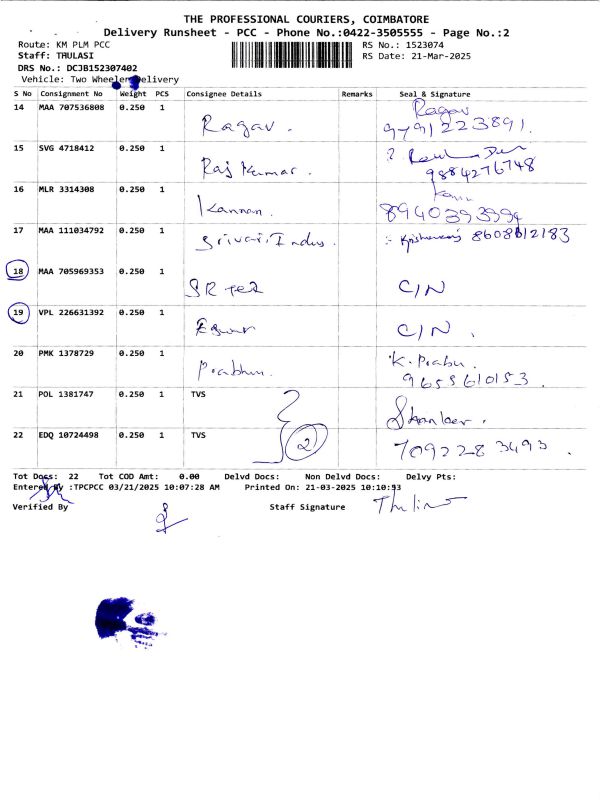 THE PROFESSIONAL COURIERS, COIMBATORE
Delivery Runsheet - PCC - Phone No.:0422-3505555 - Page No.:2
Route: KM PLM PCC RS No.: 1523074
Staff: THULASI RS Date: 21-Mar-2025
DRS No.: DCJB152307402
Vehicle: Two Wheeler Delivery
S No Consignment No Weight PCS Consignee Details Remarks Seal & Signature
14 MAA 707536808 0.250 1 Ragav. Ragav
9791223891.
15 SVG 4718412 0.250 1 Raj Kumar.
9884276748
16 MLR 3314308 0.250 1 Kannan.
17 MAA 111034792 0.250 1 Srivari Indus. 8608612183
18 MAA 705969353 0.250 1 SR tez C/N
19 VPL 226631392 0.250 1 C/N.
20 PMK 1378729 0.250 1 Prabhu. K. Prabu.
9655610153.
21 POL 1381747 0.250 1 TVS
22 EDQ 10724498 0.250 1 TVS 2 7092283493.
Tot Docs: 22 Tot COD Amt: 0.00 Delvd Docs: Non Delvd Docs: Delvy Pts:
Entered By :TPCPCC 03/21/2025 10:07:28 AM Printed On: 21-03-2025 10:10:53
Verified By Staff Signature